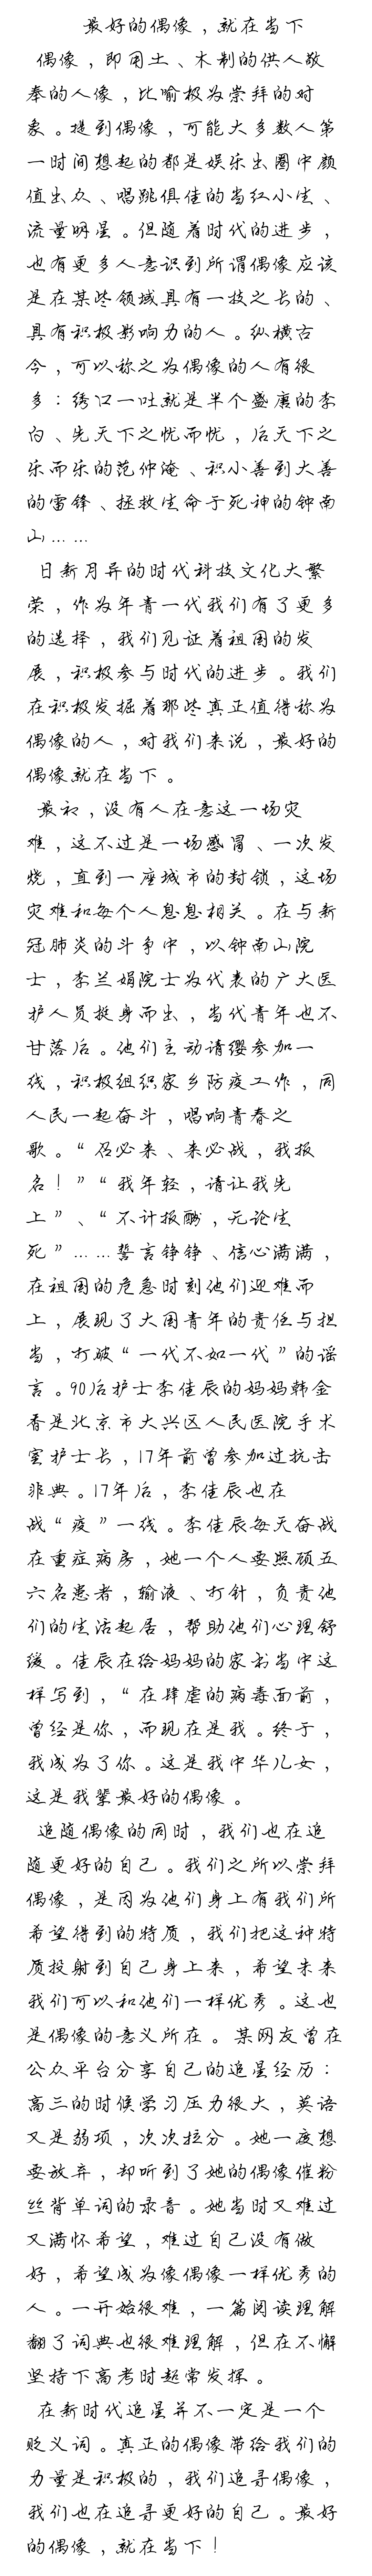 最好的偶像，就在当下
偶像，即用土、木制的供人敬
奉的人像，比喻极为崇拜的对
象。提到偶像，可能大多数人第
一时间想起的都是娱乐出圈中颜
值出众、唱跳俱佳的当红小生、
流量明星。但随着时代的进步，
也有更多人意识到所谓偶像应该
是在某些领域具有一技之长的、
具有积极影响力的人。纵横古
今，可以称之为偶像的人有很
多：绣口一吐就是半个盛唐的李
白、先天下之忧而忧，后天下之
乐而乐的范仲淹、积小善到大善
的雷锋、拯救生命于死神的钟南
山……
日新月异的时代科技文化大繁
荣，作为年青一代我们有了更多
的选择，我们见证着祖国的发
展，积极参与时代的进步。我们
在积极发掘着那些真正值得称为
偶像的人，对我们来说，最好的
偶像就在当下。
最初，没有人在意这一场灾
难，这不过是一场感冒、一次发
烧，直到一座城市的封锁，这场
灾难和每个人息息相关。在与新
冠肺炎的斗争中，以钟南山院
士，李兰娟院士为代表的广大医
护人员挺身而出，当代青年也不
甘落后。他们主动请缨参加一
线，积极组织家乡防疫工作，同
人民一起奋斗，唱响青春之
歌。“召必来、来必战，我报
名！”“我年轻，请让我先
上”、“不计报酬，无论生
死”……誓言铮铮、信心满满，
在祖国的危急时刻他们迎难而
上，展现了大国青年的责任与担
当，打破“一代不如一代”的谣
言。90后护士李佳辰的妈妈韩金
香是北京市大兴区人民医院手术
室护士长，17年前曾参加过抗击
非典。17年后，李佳辰也在
战“疫”一线。李佳辰每天奋战
在重症病房，她一个人要照顾五
六名患者，输液、打针，负责他
们的生活起居，帮助他们心理舒
缓。佳辰在给妈妈的家书当中这
样写到，“在肆虐的病毒面前，
曾经是你，而现在是我。终于，
我成为了你。这是我中华儿女，
这是我辈最好的偶像。
追随偶像的同时，我们也在追
随更好的自己。我们之所以崇拜
偶像，是因为他们身上有我们所
希望得到的特质，我们把这种特
质投射到自己身上来，希望未来
我们可以和他们一样优秀。这也
是偶像的意义所在。某网友曾在
公众平台分享自己的追星经历：
高三的时候学习压力很大，英语
又是弱项，次次拉分。她一度想
要放弃，却听到了她的偶像催粉
丝背单词的录音。她当时又难过
又满怀希望，难过自己没有做
好，希望成为像偶像一样优秀的
人。一开始很难，一篇阅读理解
翻了词典也很难理解，但在不懈
坚持下高考时超常发挥。
在新时代追星并不一定是一个
贬义词。真正的偶像带给我们的
力量是积极的，我们追寻偶像，
我们也在追寻更好的自己。最好
的偶像，就在当下！